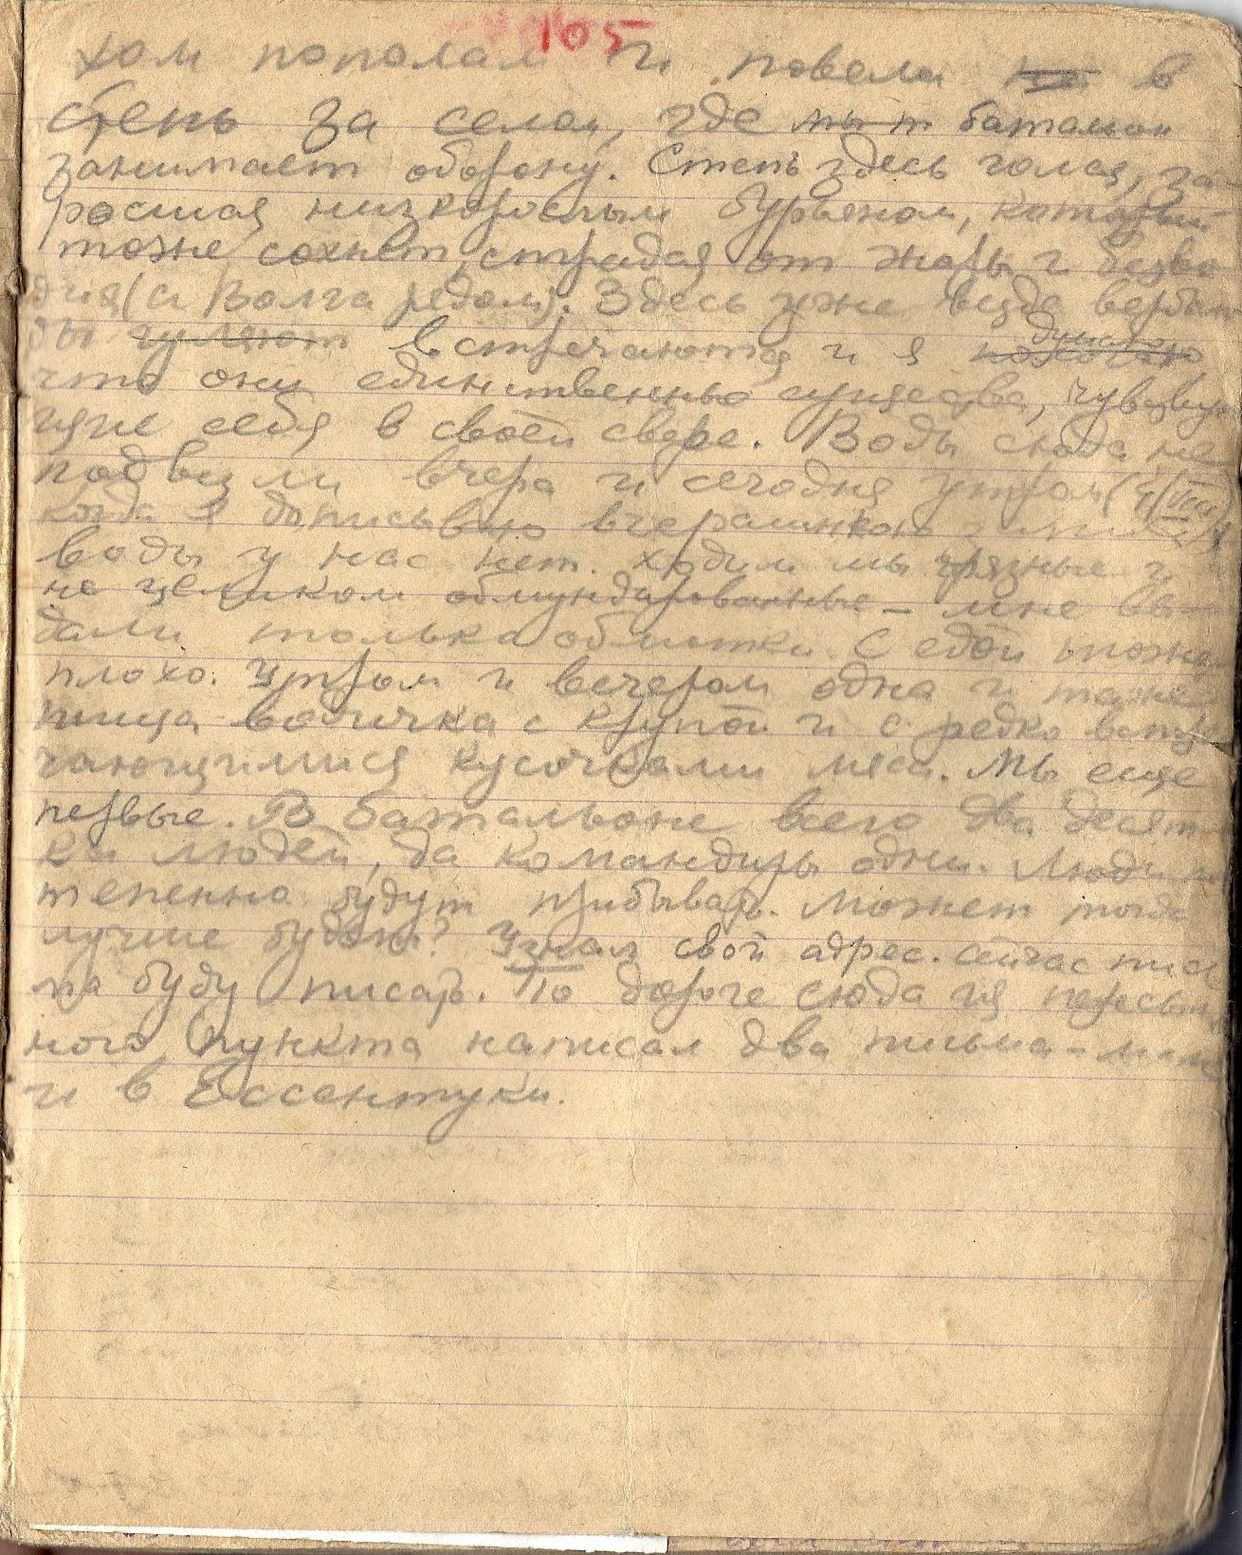 105
хом пополам и повели на в
степь за селом, где мы т батальон
занимает оборону. Степь здесь голая, за-
росшая низкорослым бурьяном, который
тоже сохнет, страдая от жары и безво
дия (а Волга рядом). Здесь уже везде верблю
ды гуляют встречаются и я думаю
что они единственные существа, чувствую
щие себя в своей сфере. Воды сюда не
подвезли вчера и сегодня утром
когда я дописываю вчерашнюю
воды у нас нет. Ходим мы грязные и
не целиком обмундированные – мне вы
дали только обмотки. С едой тоже
плохо. Утром и вечером одна и таже
пища с крупой и с редко встре
чающимися кусочками мяса. Мы еще
первые. В батальоне всего два десят
ка людей, да командиры одни. Люди по
тепенно будут прибывать. Может тогда
лучше будет? Узнал свой адрес. Сейчас пись
ма буду писать. По дороге сюда из пересыл
ного пункта написал два письма – маме
и в Ессентуки.